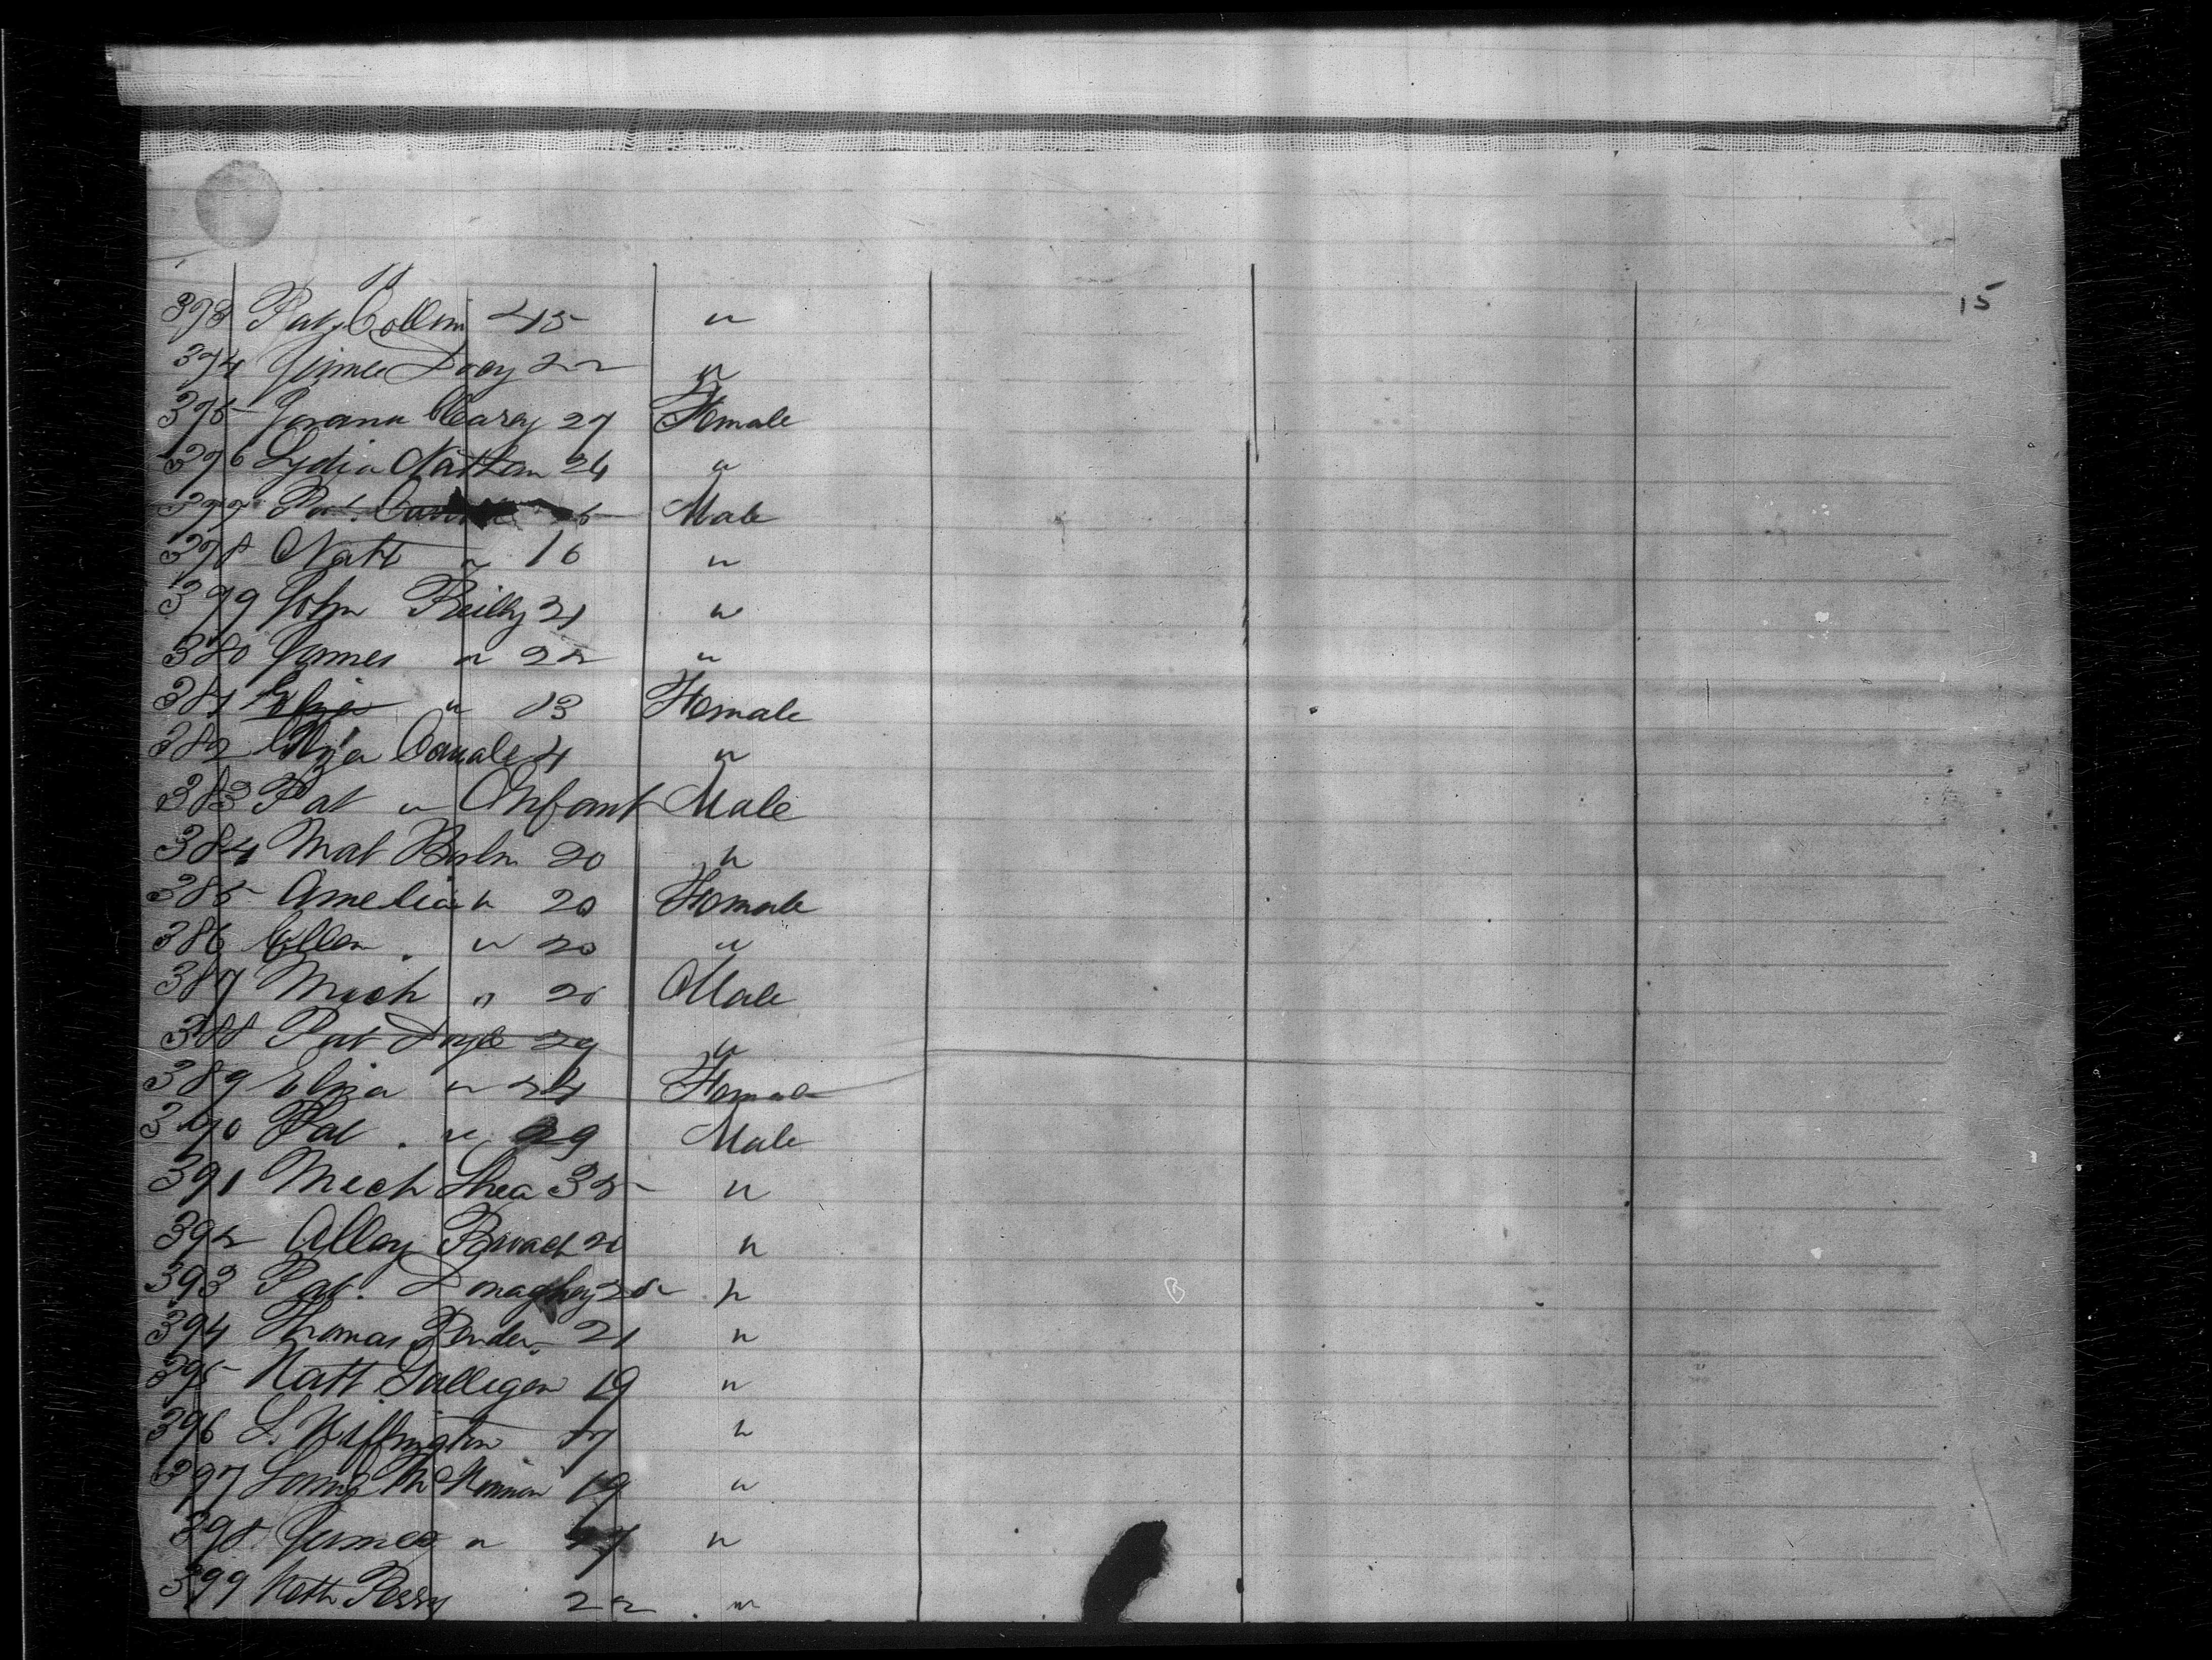 15
373 Pat Collins 45 "
374 James Doey 22 "
375 Joanna Cleary 27 Female
376 Lydia Nathan 24 "
377 Pat. Male
378 Natt " 16 "
379 John Reilly 21 "
380 James " 22 "
381 Eliza " 13 Female
382 Eliza 4 "
383 Pat " Infant Male
384 Mat 20 "
385 Amelia " 20 Female
386 Ellen " 20 "
387 Mich " 20 Male
388 Pat Doyle 29 "
389 Eliza " 24 Female
390 Pat " 29 Male
391 Mich Shea 35 "
392 Alley 20 "
393 Pat. Donaghey "
394 Thomas Pender 21 "
395 Natt Galligan 19 "
396 L. "
397 McKinnon 19 "
398 James " "
399 Perry 22 "